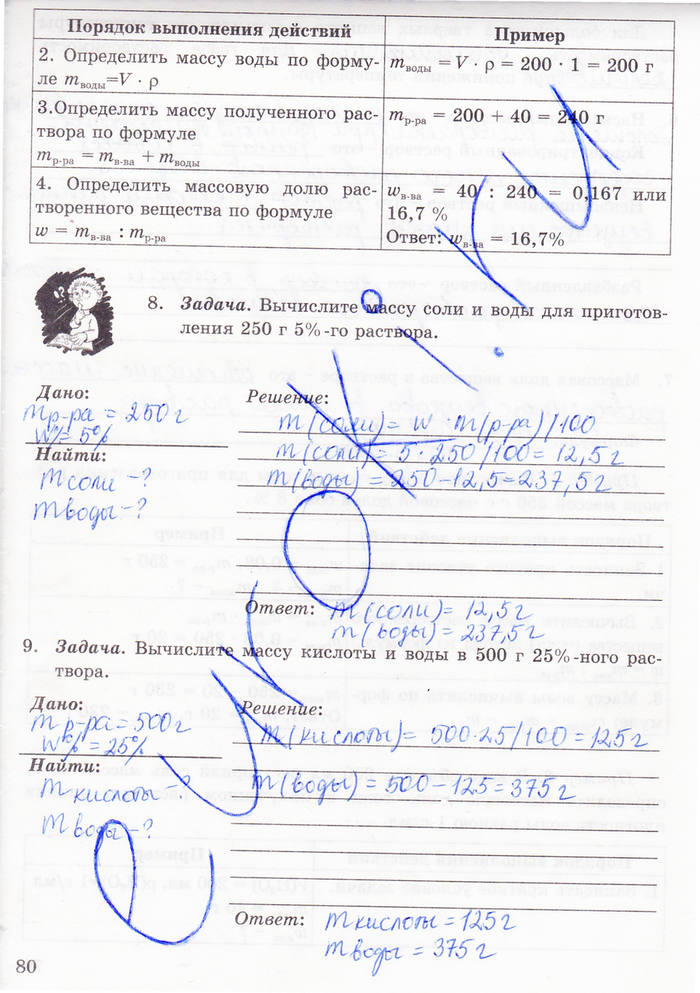 Порядок выполнения действий
Пример
2. Определить массу воды по форму-
ле mводы=V · ρ
mводы = V · ρ = 200 · 1 = 200 г
3.Определить массу полученного рас-
твора по формуле
mр-ра = mв-ва + mводы
mр-ра = 200 + 40 = 240 г
4. Определить массовую долю рас-
творенного вещества по формуле
w = mв-ва : mр-ра
wв-ва = 40 : 240 = 0,167 или
16,7 %
Ответ: wв-ва = 16,7%
8. Задача. Вычислите массу соли и воды для приготов-
ления 250 г 5%-го раствора.
Дано:
mр-ра = 250г
W% = 5%
Найти:
m соли -?
m воды -?
Решение:
m(соли) = w · m(р-ра)/100
m(соли) = 5 · 250/100 = 12,5г
m(воды) = 250-12,5=237,5г
Ответ: m(соли) = 12,5г
m(воды) = 237,5г
9. Задача. Вычислите массу кислоты и воды в 500 г 25%-ного рас-
твора.
Дано:
m р-ра = 500г
W% = 25%
Найти:
m кислоты -?
m воды -?
Решение:
m(кислоты) = 500·25/100 = 125г
m(воды) = 500-125 = 375г
Ответ: m кислоты = 125г
m воды = 375г
80